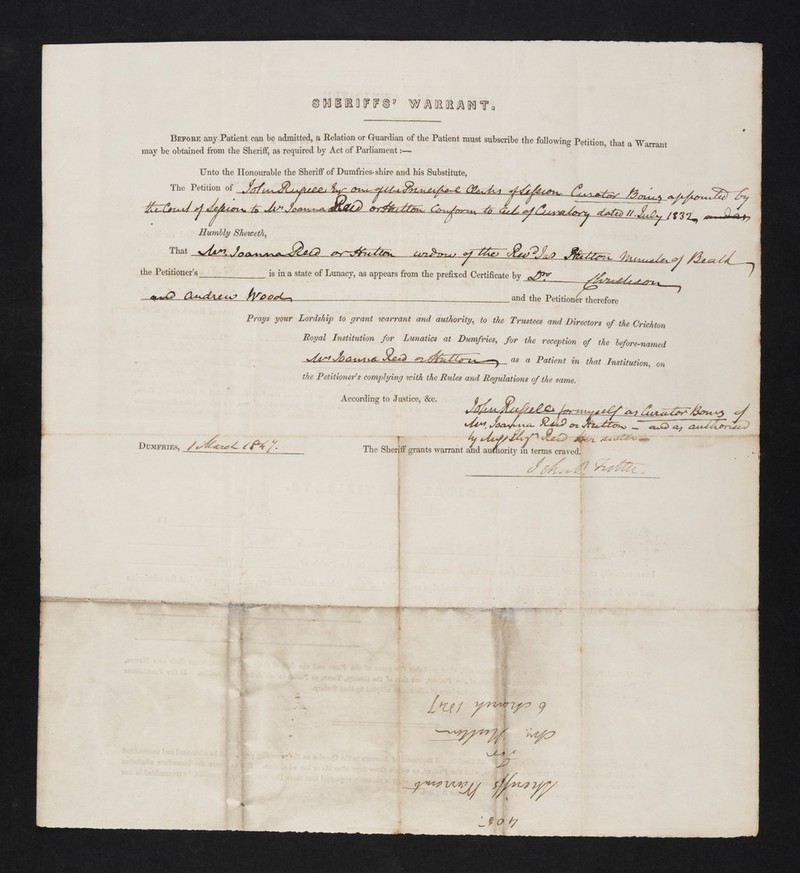 SHERIFFS' WARRANT.
Before any Patient can be admitted, a Relation or Guardian of the Patient must subscribe the following Petition, that a Warrant
may be obtained from the Sheriff, as required by Act of Parliament:—
Unto the Honourable the Sheriff of Dumfries-shire and his Substitute,
The Petition of John Russell Esqr one of the Principal Clerks of Session Curator Bonis appointed by
the Court of Session to Mrs Joanna Reid or Hutton conform to Act of Curatory dated 11 July 1832,
Humbly Sheweth,
That Mrs Joanna Reid or Hutton widow of the Revd Jas Hutton Minister of Beath
the Petitioner's is in a state of Lunacy, as appears from the prefixed Certificate by Drs Christison
and Andrew Wood and the Petitioner therefore
Prays your Lordship to grant warrant and authority, to the Trustees and Directors of the Crichton
Royal Institution for Lunatics at Dumfries, for the reception of the before-named
Mrs Joanna Reid or Hutton as a Patient in that Institution, on
the Petitioner's complying with the Rules and Regulations of the same.
According to Justice, &c.
John Russell for myself as Curator Bonis of
Mrs Joanna Reid or Hutton – and as authorised
by Miss Reid her sister
Dumfries, 1 March 1847. The Sheriff grants warrant and authority in terms craved.
John Trotter.
403.
Sheriffs Warrant
for
Mrs Hutton
6 March 1847